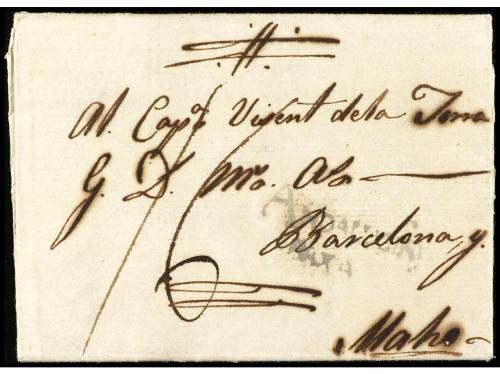 Al. Capn. Visent dela Torra
G. D. Ms. As
Barcelona, y.
Maho